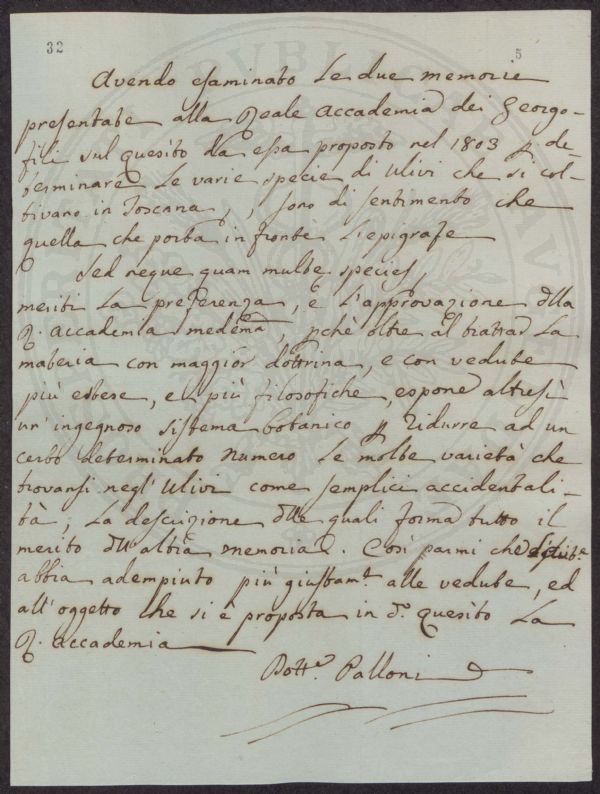 32
5
Avendo esaminato Le due memorie
presentate alla Reale Accademia dei Georgo-
fili sul quesito da essa proposto nel 1803 p. de-
terminare Le varie specie di Ulivi che si col-
tivano in Toscana, sono di sentimento che
quella che porta in fronte L'epigrafe
Sed neque quam multe species,
meriti La preferenza, e L'approvazione dlla
R. Accademia medema, pchè oltre al trattar La
materia con maggior dottrina, e con vedute
più estese, e più filosofiche, espone altresì
un' ingegnoso sistema botanico p ridurre ad un
certo determinato Numero Le molte varietà che
trovansi negl' Ulivi come semplici accidentali-
tà, La descrizione dlle quali forma tutto il
merito dll'altra memoria. Così parmi che
abbia adempiuto più giustamte alle vedute, ed
all'oggetto che si è proposta in do. quesito La
R. Accademia
Dotte. Palloni